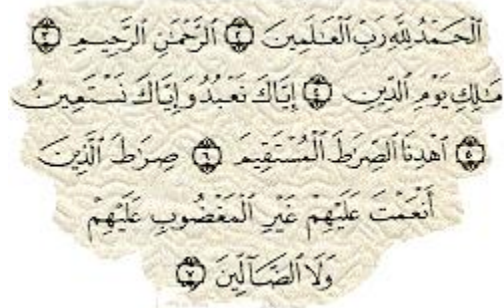 ٱلْحَمْدُ لِلَّهِ رَبِّ ٱلْعَـٰلَمِينَ ٢ ٱلرَّحْمَـٰنِ ٱلرَّحِيمِ ٣
مَـٰلِكِ يَوْمِ ٱلدِّينِ ٤ إِيَّاكَ نَعْبُدُ وَإِيَّاكَ نَسْتَعِينُ
٥ ٱهْدِنَا ٱلصِّرَٰطَ ٱلْمُسْتَقِيمَ ٦ صِرَٰطَ ٱلَّذِينَ
أَنْعَمْتَ عَلَيْهِمْ غَيْرِ ٱلْمَغْضُوبِ عَلَيْهِمْ
وَلَا ٱلضَّآلِّينَ ٧